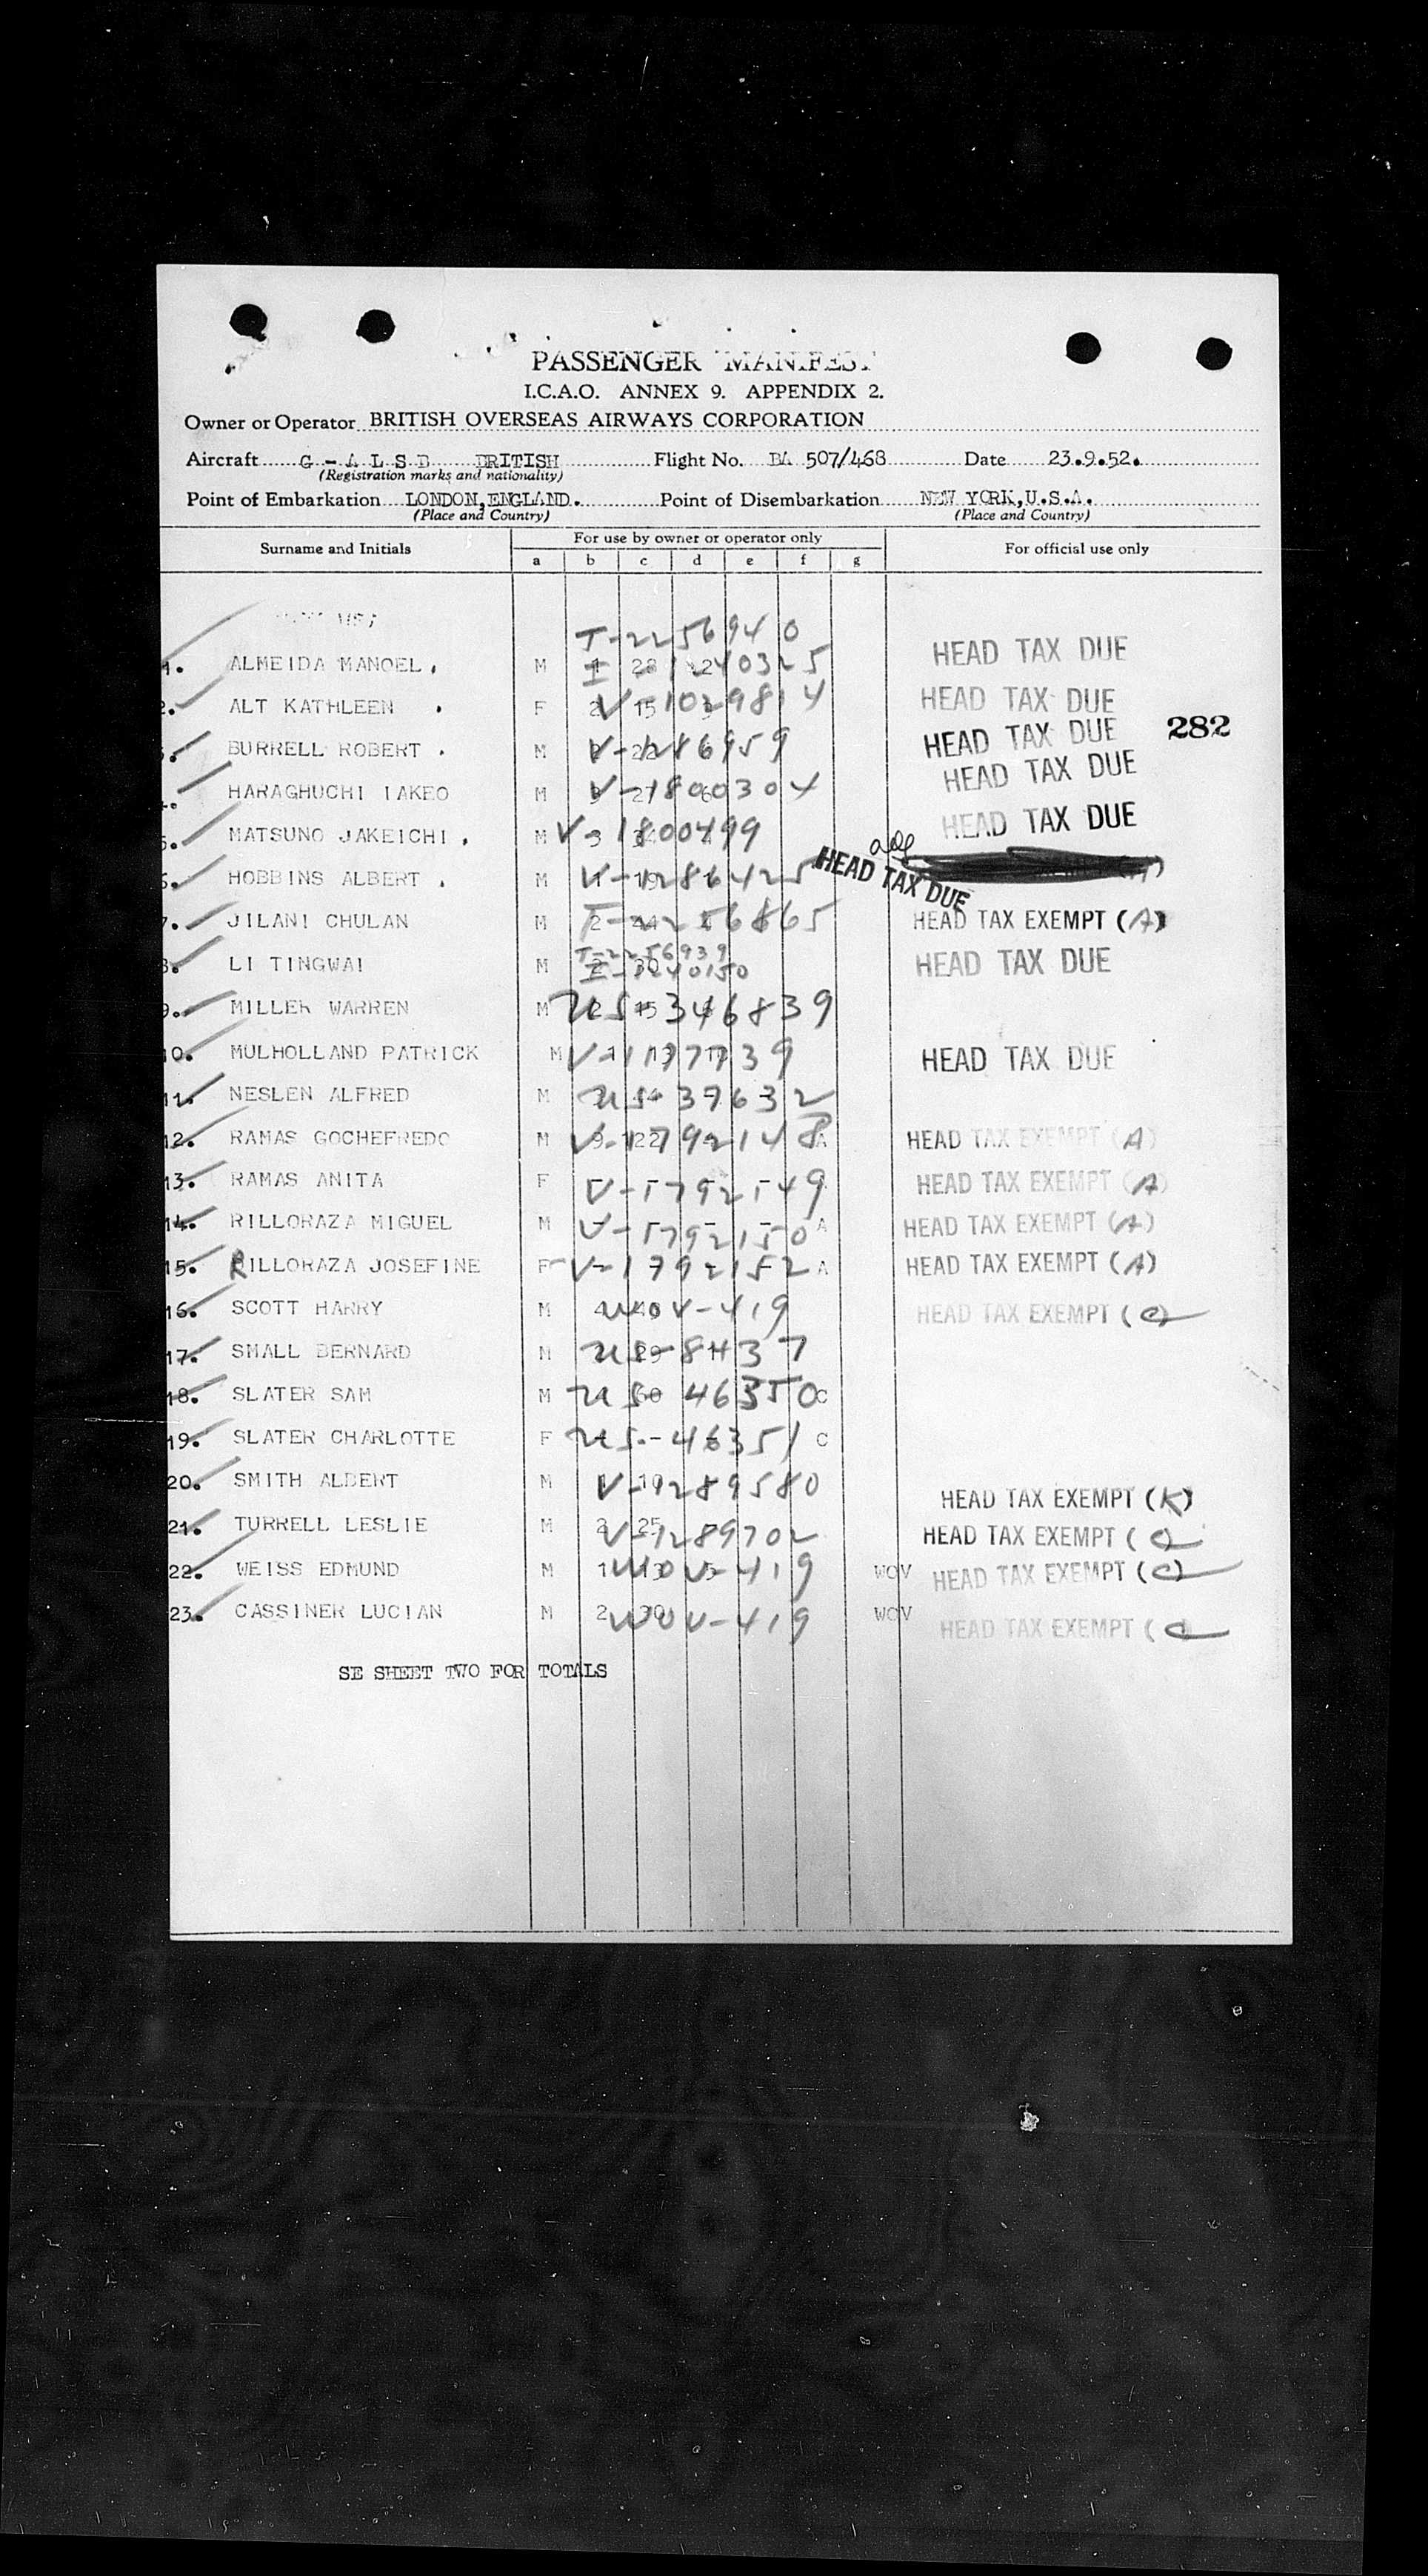 PASSENGER MANIFEST
I.C.A.O. ANNEX 9. APPENDIX 2.
Owner or Operator BRITISH OVERSEAS AIRWAYS CORPORATION
Aircraft G - A L S D BRITISH Flight No. BA 507/468 Date 23.9.52.
(Registration marks and nationality)
Point of Embarkation LONDON,ENGLAND. Point of Disembarkation NEW YORK,U.S.A.
(Place and Country) (Place and Country)
Surname and Initials For use by owner or operator only For official use only
a b c d e f g
T-2256940
1. ALMEIDA MANOEL. M I-1240325 HEAD TAX DUE
2. ALT KATHLEEN . F V-1029814 HEAD TAX DUE
BURRELL ROBERT . M V-1286959 HEAD TAX DUE 282
HARAGHUCHI IAKEO M V-1800304 HEAD TAX DUE
5. MATSUNO JAKEICHI. M V-1800499 HEAD TAX DUE
6. HOBBINS ALBERT . M V-1286425 HEAD TAX DUE
7. JILANI CHULAN M T-2256865 HEAD TAX EXEMPT (A)
T-2256939
8. LI TINGWAI M I-1240150 HEAD TAX DUE
9. MILLER WARREN M US-346839
10. MULHOLLAND PATRICK M V-1177739 HEAD TAX DUE
11. NESLEN ALFRED M US-37632
12. RAMAS GOCHEFREDO M V-1792148 A HEAD TAX EXEMPT (A)
13. RAMAS ANITA F V-1792149 HEAD TAX EXEMPT (A)
14. RILLORAZA MIGUEL M V-1792150 A HEAD TAX EXEMPT (A)
15. RILLORAZA JOSEFINE F V-1792152 A HEAD TAX EXEMPT (A)
16. SCOTT HARRY M WOV-419 HEAD TAX EXEMPT (C)
17. SMALL BERNARD M US-8437
18. SLATER SAM M US-46350 C
19. SLATER CHARLOTTE F US-46351 C
20. SMITH ALBERT M V-1289580 HEAD TAX EXEMPT (K)
21. TURRELL LESLIE M V-1289702 HEAD TAX EXEMPT (C)
22. WEISS EDMUND M WOV-419 WOV HEAD TAX EXEMPT (C)
23. CASSINER LUCIAN M WOV-419 WOV HEAD TAX EXEMPT (C)
SE SHEET TWO FOR TOTALS